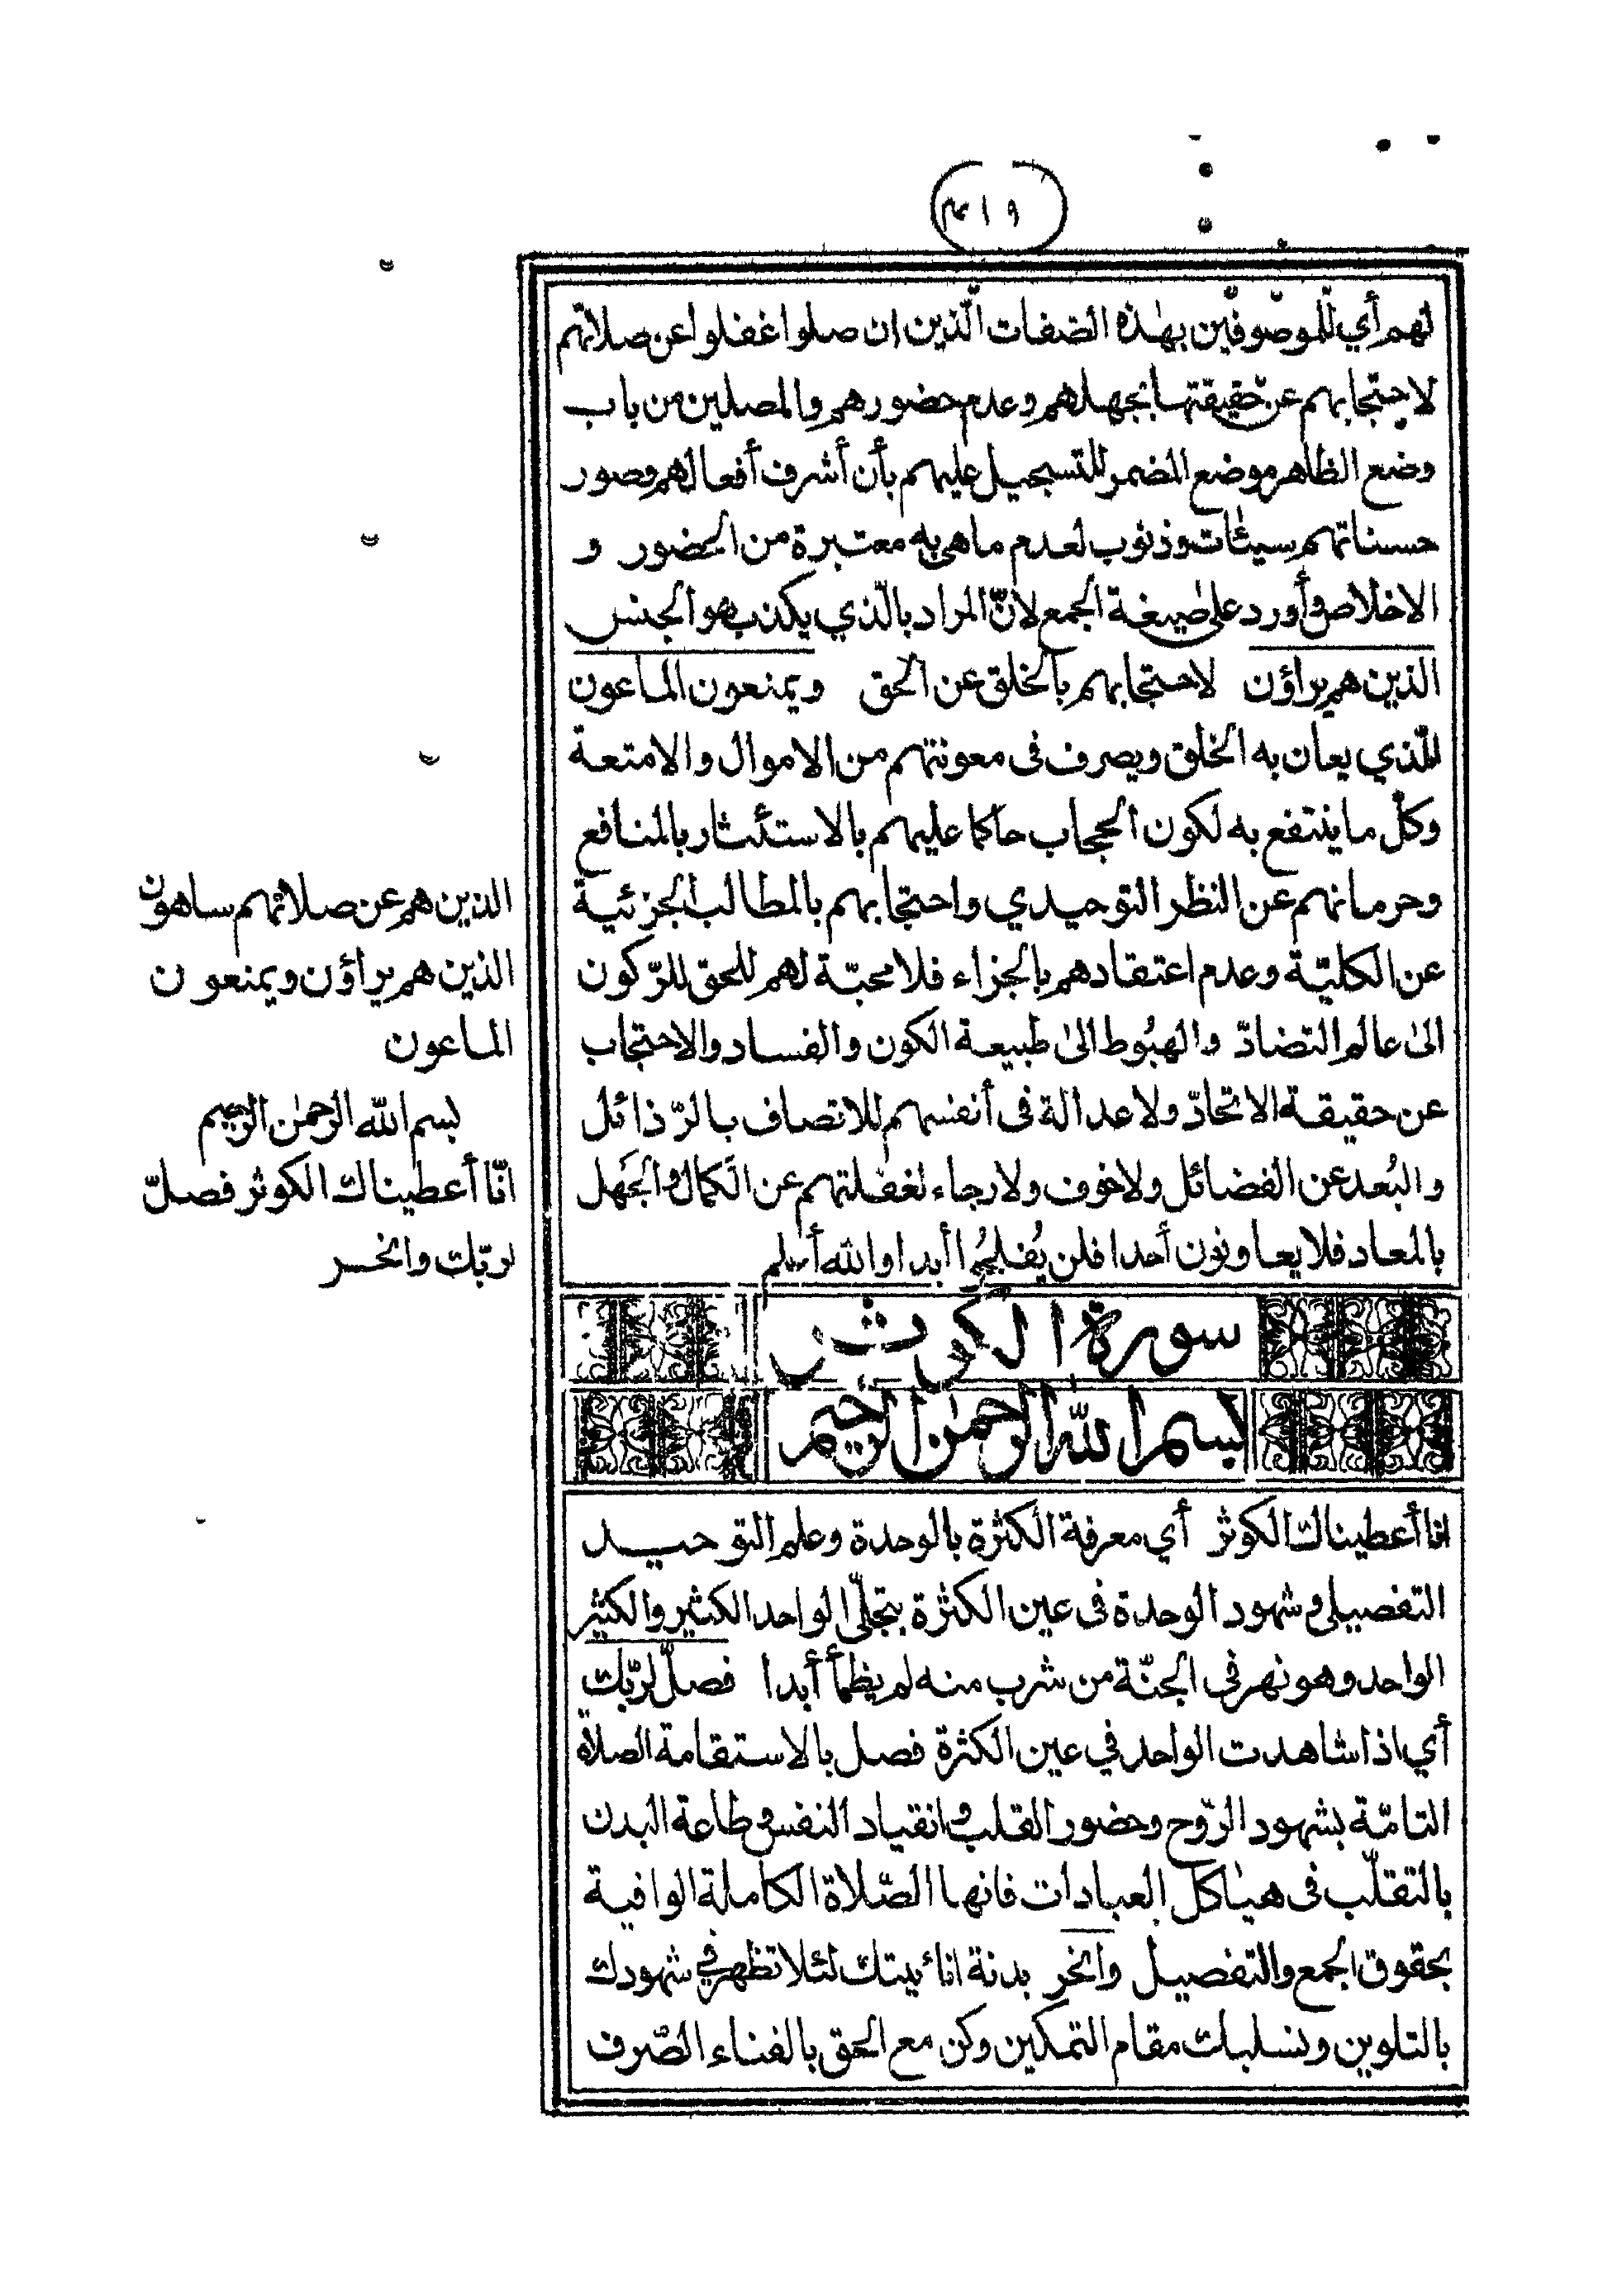 ٤١٩
لهم أي للموصوفين بهٰذه الصفات الّذين ان صلوا غفلوا عن صلاتهم
لاحتجابهم عن حقيقتها بجهلهم وعدم حضورهم والمصلين من باب
وضع الظاهر موضع المضمر للتسجيل عليهم بأن أشرف أفعالهم وصور
حسناتهم سيئات وذنوب لعدم ما هي به معتبرة من الحضور و
الاخلاص وأورد على صيغة الجمع لانّ المراد بالّذي يكذب هو الجنس
الذين هم يراؤن لاحتجابهم بالخلق عن الحق ويمنعون الماعون
للّذي يعان به الخلق ويصرف فى معونتهم من الاموال والامتعة
وكلّ ما ينتفع به لكون الحجاب حاكما عليهم بالاستئثار بالمنافع
وحرمانهم عن النظر التوحيدي واحتجابهم بالمطالب الجزئية
عن الكليّة وعدم اعتقادهم بالجزاء فلا محبّة لهم للحق للرّكون
الىٰ عالم التضادّ والهبُوط الىٰ طبيعة الكون والفساد والاحتجاب
عن حقيقة الاتحادّ ولا عدالة فى أنفسهم للاتصاف بالرّذائل
والبُعد عن الفضائل ولا خوف ولا رجاء لغفلتهم عن الكمال والجَهل
بالمعاد فلا يعاونون أحدا فلن يُفلحُوا أبدا والله أعلم
الذين هم عن صلاتهم ساهون
الذين هم يراؤن ويمنعون
الماعون
بسم الله الرحمٰن الرحيم
انّا أعطيناك الكوثر فصلّ
لربّك وانحر
سورة الكوثر
بسم الله الرحمٰن الرحيم
انا أعطيناك الكوثر أي معرفة الكثرة بالوحدة وعلم التوحيد
التفصيلى وشهود الوحدة فى عين الكثرة بتجلّى الواحد الكثير والكثير
الواحد وهو نهر في الجنّة من شرب منه لم يظمأ أبدا فصلّ لربّك
أي اذا شاهدت الواحد في عين الكثرة فصل بالاستقامة الصلاة
التامّة بشهود الرّوح وحضور القلب وانقياد النفس وطاعة البدن
بالتقلّب فى هيٰاكل العبادات فانها الصّلاة الكاملة الوافية
بحقوق الجمع والتفصيل وانحر بدنة انائيتك لئلا تظهر في شهودك
بالتلوين وتسلبك مقام التمكين وكن مع الحق بالفناء الصّرف